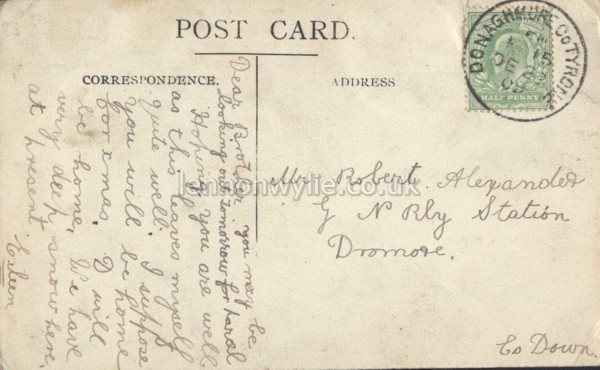 POST CARD.
CORRESPONDENCE.
ADDRESS
HALF PENNY
DONAGHMORE CO TYRONE
DE 22
Dear Brother you may be
looking out tomorrow for
Hoping you are well
as this leaves myself
quite well. I suppose
you will be home
for xmas D will
be home. We have
very deep snow here
at present.
Eileen
Mr Robert Alexander
G N Rly Station
Dromore.
Co Down.
lennonwylie.co.uk